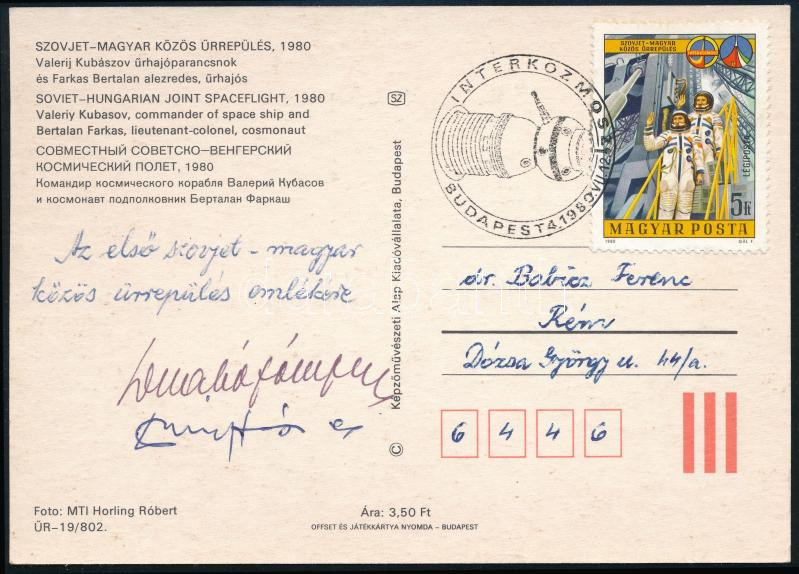 SZOVJET–MAGYAR KÖZÖS ŰRREPÜLÉS, 1980
Valerij Kubászov űrhajóparancsnok
és Farkas Bertalan alezredes, űrhajós
SOVIET–HUNGARIAN JOINT SPACEFLIGHT, 1980
Valeriy Kubasov, commander of space ship and
Bertalan Farkas, lieutenant-colonel, cosmonaut
СОВМЕСТНЫЙ СОВЕТСКО–ВЕНГЕРСКИЙ
КОСМИЧЕСКИЙ ПОЛЕТ, 1980
Командир космического корабля Валерий Кубасов
и космонавт подполковник Берталан Фаркаш
Az első szovjet – magyar
közös űrrepülés emlékére
Foto: MTI Horling Róbert
ŰR-19/802.
Ára: 3,50 Ft
OFFSET ÉS JÁTÉKKÁRTYA NYOMDA – BUDAPEST
SZ
© Képzőművészeti Alap Kiadóvállalata, Budapest
INTERKOZMOSZ
BUDAPEST 4. 1980.VII.12
SZOVJET-MAGYAR
KÖZÖS ŰRREPÜLÉS
LÉGIPOSTA
5 Ft
MAGYAR POSTA
1980
GÁL F.
dr. Babicz Ferenc
Rém
Dózsa György u. 44/a.
6 4 4 6